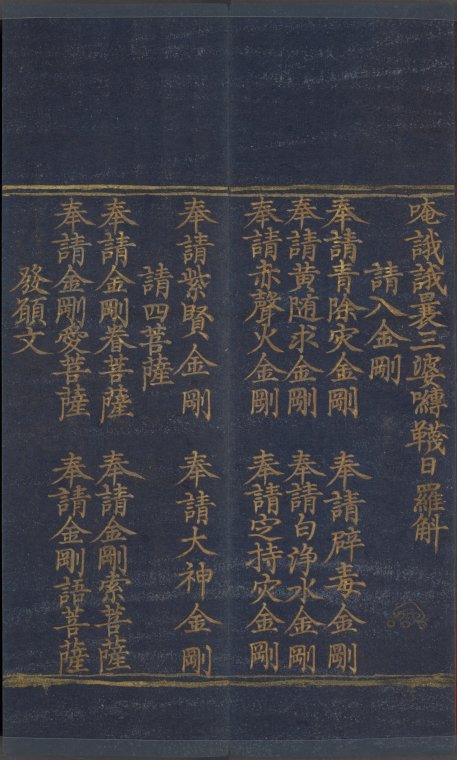 唵誐誐曩三婆嚩韈日羅斛
請八金剛
奉請青除灾金剛 奉請辟毒金剛
奉請黄随求金剛 奉請白净水金剛
奉請赤聲火金剛 奉請定持灾金剛
奉請紫賢金剛 奉請大神金剛
請四菩薩
奉請金剛眷菩薩 奉請金剛索菩薩
奉請金剛愛菩薩 奉請金剛語菩薩
發願文